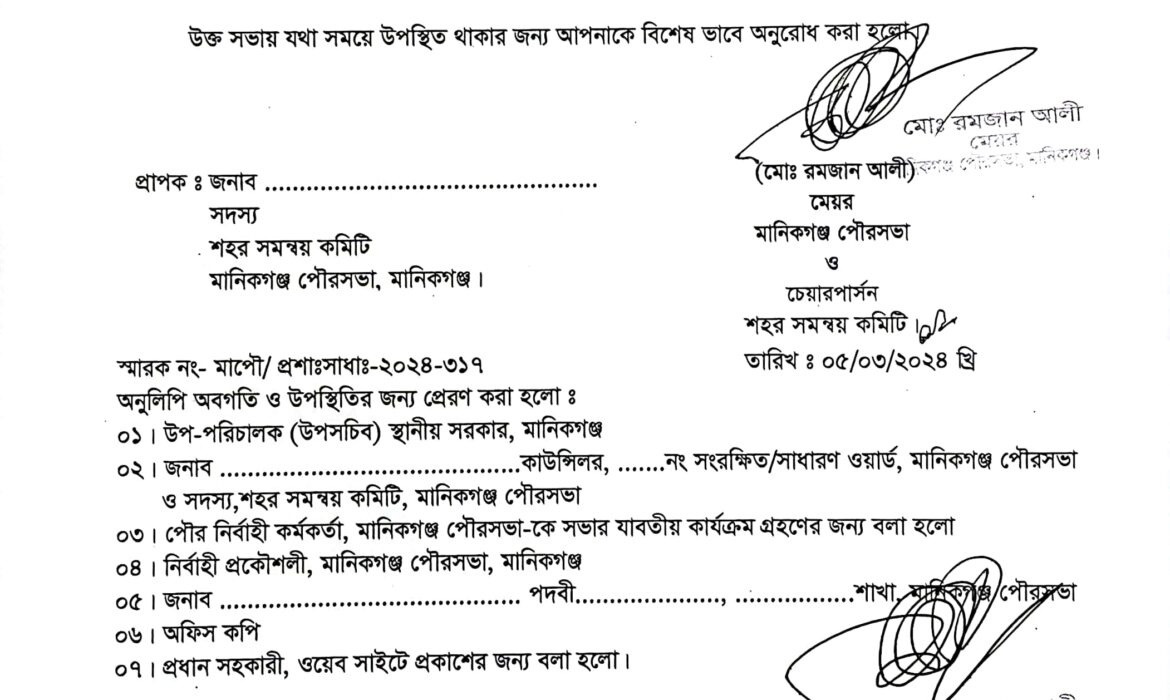 উক্ত সভায় যথা সময়ে উপস্থিত থাকার জন্য আপনাকে বিশেষ ভাবে অনুরোধ করা হলো।
মোঃ রমজান আলী
মেয়র
পৌরসভা, মানিকগঞ্জ।
(মোঃ রমজান আলী)
মেয়র
মানিকগঞ্জ পৌরসভা
ও
চেয়ারপার্সন
শহর সমন্বয় কমিটি।
প্রাপক ঃ জনাব ................................................
সদস্য
শহর সমন্বয় কমিটি
মানিকগঞ্জ পৌরসভা, মানিকগঞ্জ।
স্মারক নং- মাপৌ/ প্রশাঃসাধাঃ-২০২৪-৩১৭
তারিখ ঃ ০৫/০৩/২০২৪ খ্রি
অনুলিপি অবগতি ও উপস্থিতির জন্য প্রেরণ করা হলো ঃ
০১। উপ-পরিচালক (উপসচিব) স্থানীয় সরকার, মানিকগঞ্জ
০২। জনাব ............................................কাউন্সিলর, .......নং সংরক্ষিত/সাধারণ ওয়ার্ড, মানিকগঞ্জ পৌরসভা
ও সদস্য,শহর সমন্বয় কমিটি, মানিকগঞ্জ পৌরসভা
০৩। পৌর নির্বাহী কর্মকর্তা, মানিকগঞ্জ পৌরসভা-কে সভার যাবতীয় কার্যক্রম গ্রহণের জন্য বলা হলো
০৪। নির্বাহী প্রকৌশলী, মানিকগঞ্জ পৌরসভা, মানিকগঞ্জ
০৫। জনাব ............................................ পদবী....................., .................শাখা, মানিকগঞ্জ পৌরসভা
০৬। অফিস কপি
০৭। প্রধান সহকারী, ওয়েব সাইটে প্রকাশের জন্য বলা হলো।